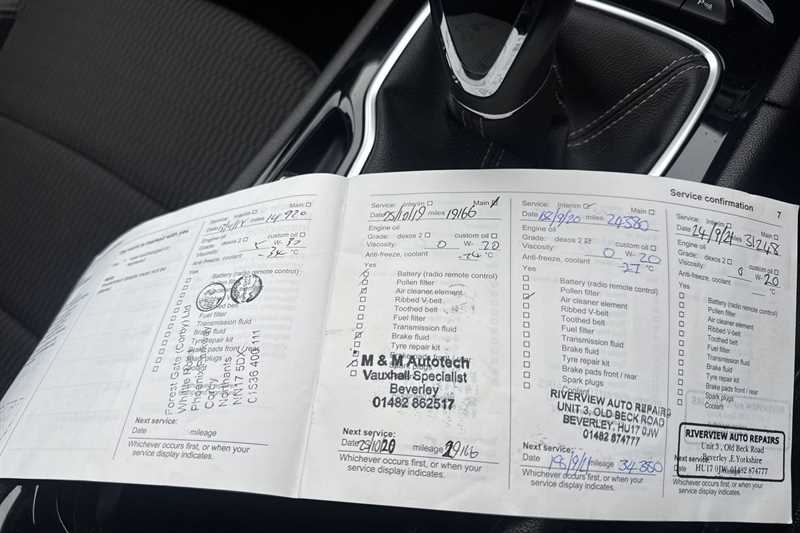 Service confirmation 7
Service: Interim ☐ Main ☐
miles 14,920
Engine oil
Grade: dexos 2 ☐ custom oil ☐
Viscosity: W-
Anti-freeze, coolant °C
Yes
Battery (radio remote control)
Fuel filter
Transmission fluid
Brake fluid
Tyre repair kit
Brake pads front / rear
Spark plugs
Forest Gate (Corby) Ltd
Corby
Northants
NN17 5DX
01536 400 111
Next service:
Date mileage
Whichever occurs first, or when your
service display indicates.
Service: Interim ☐ Main
Date 25/10/19 miles 19166
Engine oil
Grade: dexos 2 ☐ custom oil ☐
Viscosity: 0 W- 20
Anti-freeze, coolant °C
Yes
Battery (radio remote control)
Pollen filter
Air cleaner element
Ribbed V-belt
Toothed belt
Fuel filter
Transmission fluid
Brake fluid
Tyre repair kit
Brake pads front / rear
Spark plugs
M & M Autotech
Vauxhall Specialist
Beverley
01482 862517
Next service:
Date 25/10/20 mileage 29166
Whichever occurs first, or when your
service display indicates.
Service: Interim Main ☐
Date /9/20 miles 24380
Engine oil
Grade: dexos 2 custom oil ☐
Viscosity: 0 W- 20
Anti-freeze, coolant °C
Yes
Battery (radio remote control)
Pollen filter
Air cleaner element
Ribbed V-belt
Toothed belt
Fuel filter
Transmission fluid
Brake fluid
Tyre repair kit
Brake pads front / rear
Spark plugs
Coolant
RIVERVIEW AUTO REPAIRS
UNIT 3, OLD BECK ROAD
BEVERLEY, HU17 0JW
01482 874777
Next service:
Date mileage 34,380
Whichever occurs first, or when your
service display indicates.
Service: Interim ☐ Main ☐
Date 24/9/21 miles 31248
Engine oil
Grade: dexos 2 ☐ custom oil ☐
Viscosity: 0 W- 20
Anti-freeze, coolant °C
Yes
Battery (radio remote control)
Pollen filter
Air cleaner element
Ribbed V-belt
Toothed belt
Fuel filter
Transmission fluid
Brake fluid
Tyre repair kit
Brake pads front / rear
Spark plugs
Coolant
RIVERVIEW AUTO REPAIRS
Unit 3, Old Beck Road
Beverley, E.Yorkshire
HU17 0JW 01482 874777
Next service:
Date mileage
Whichever occurs first, or when your
service display indicates.